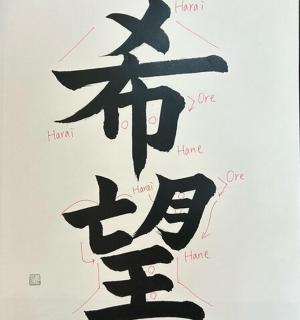 希望
Harai
Ore
Harai
Hane
Harai
Ore
Hane